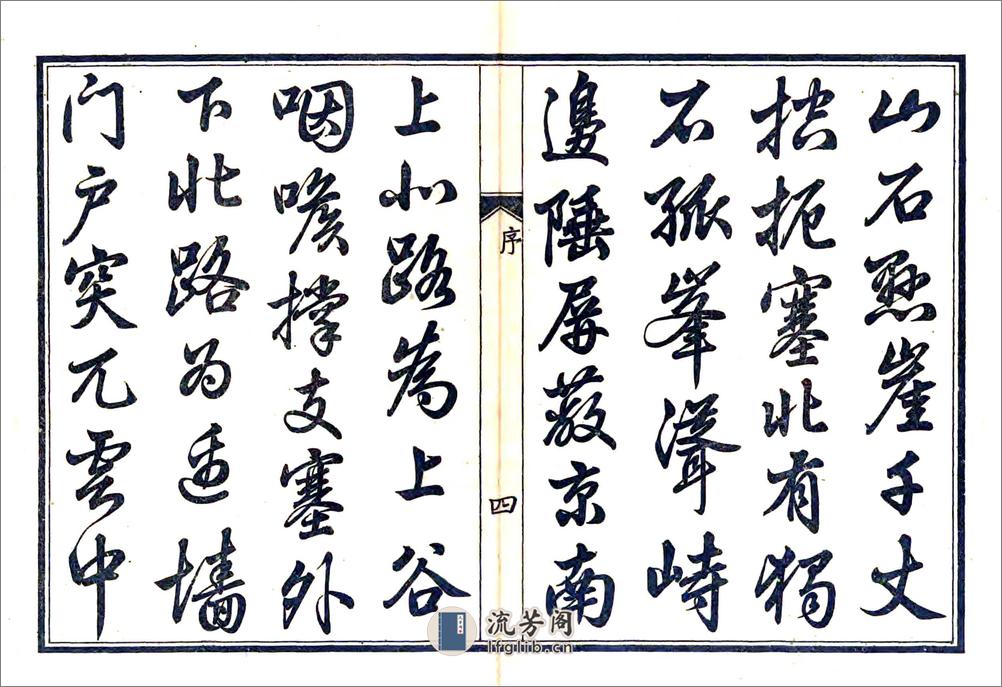 山石懸崖千丈
控扼塞北有獨
石孤峯聳峙
邊陲屏蔽京南
序
四
上北路為上谷
咽喉撑支塞外
下北路为邊墙
门户突兀雲中
流芳阁
lfglib.cn